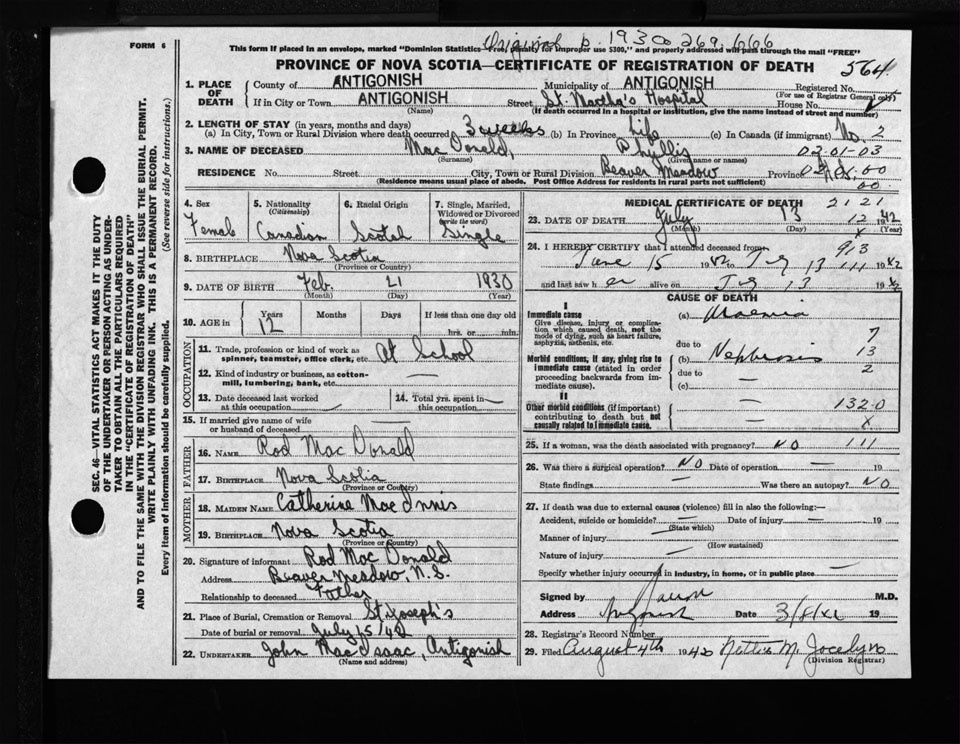 FORM 6
Original p. 1930 269,666
This form if placed in an envelope, marked "Dominion Statistics—Free, penalty for improper use $300," and properly addressed will pass through the mail "FREE"
PROVINCE OF NOVA SCOTIA—CERTIFICATE OF REGISTRATION OF DEATH
564
1. PLACE OF DEATH
County of ANTIGONISH Municipality of ANTIGONISH Registered No.
(For use of Registrar General only)
If in City or Town ANTIGONISH Street St. Martha's Hospital House No.
(Name) (If death occurred in a hospital or institution, give the name instead of street and number)
2. LENGTH OF STAY (in years, months and days)
(a) In City, Town or Rural Division where death occurred 3 weeks (b) In Province Life (c) In Canada (if immigrant) No. 2
3. NAME OF DECEASED Mac Donald, Phyllis 02-01-03
(Surname) (Given name or names)
RESIDENCE No. Street City, Town or Rural Division Beaver Meadow Province N.S.
(Residence means usual place of abode. Post Office Address for residents in rural parts not sufficient)
00
4. Sex 5. Nationality (Citizenship) 6. Racial Origin 7. Single, Married, Widowed or Divorced (write the word)
Female Canadian Scotch Single
8. BIRTHPLACE Nova Scotia
(Province or Country)
9. DATE OF BIRTH Feb. 21 1930
(Month) (Day) (Year)
10. AGE in Years Months Days If less than one day old
12 hrs. or min.
OCCUPATION
11. Trade, profession or kind of work as spinner, teamster, office clerk, etc. At School
12. Kind of industry or business, as cotton-mill, lumbering, bank, etc. —
13. Date deceased last worked at this occupation 14. Total yrs. spent in this occupation
15. If married give name of wife or husband of deceased
FATHER
16. NAME Rod Mac Donald
17. BIRTHPLACE Nova Scotia
(Province or Country)
MOTHER
18. MAIDEN NAME Catherine MacInnis
19. BIRTHPLACE Nova Scotia
(Province or Country)
20. Signature of informant Rod Mac Donald
Address Beaver Meadow, N.S.
Relationship to deceased Father
21. Place of Burial, Cremation or Removal St. Joseph's
Date of burial or removal July 15/42
22. UNDERTAKER John MacIsaac, Antigonish
(Name and address)
MEDICAL CERTIFICATE OF DEATH
21 21
23. DATE OF DEATH July 13 1942
12
(Month) (Day) (Year)
24. I HEREBY CERTIFY that I attended deceased from
913
June 15 1942 to July 13 1942
111
and last saw her alive on July 13 1942
CAUSE OF DEATH
I
Immediate cause
Give disease, injury or complication, which caused death, not the mode of dying, such as heart failure, asphyxia, asthenia, etc.
(a) Uraemia
due to
7
Morbid conditions, if any, giving rise to immediate cause (stated in order proceeding backwards from immediate cause).
(b) Nephrosis 13
due to
2
(c) —
II
Other morbid conditions (if important) contributing to death but not causally related to immediate cause.
132.0
X
25. If a woman, was the death associated with pregnancy? NO 111
26. Was there a surgical operation? NO Date of operation — 19
State findings — Was there an autopsy? NO
27. If death was due to external causes (violence) fill in also the following:—
Accident, suicide or homicide? — Date of injury — 19
(State which)
Manner of injury —
(How sustained)
Nature of injury —
Specify whether injury occurred in industry, in home, or in public place
Signed by M.D.
Address Antigonish Date 3/8/42 19
28. Registrar's Record Number
29. Filed August 4th 1942 Nettie M. Jocelyn
(Division Registrar)
SEC. 46—VITAL STATISTICS ACT MAKES IT THE DUTY
OF THE UNDERTAKER OR PERSON ACTING AS UNDER-
TAKER TO OBTAIN ALL THE PARTICULARS REQUIRED
IN THE "CERTIFICATE OF REGISTRATION OF DEATH"
AND TO FILE THE SAME WITH THE DIVISION REGISTRAR WHO SHALL ISSUE THE BURIAL PERMIT.
WRITE PLAINLY WITH UNFADING INK. THIS IS A PERMANENT RECORD.
Every item of information should be carefully supplied. (See reverse side for instructions.)